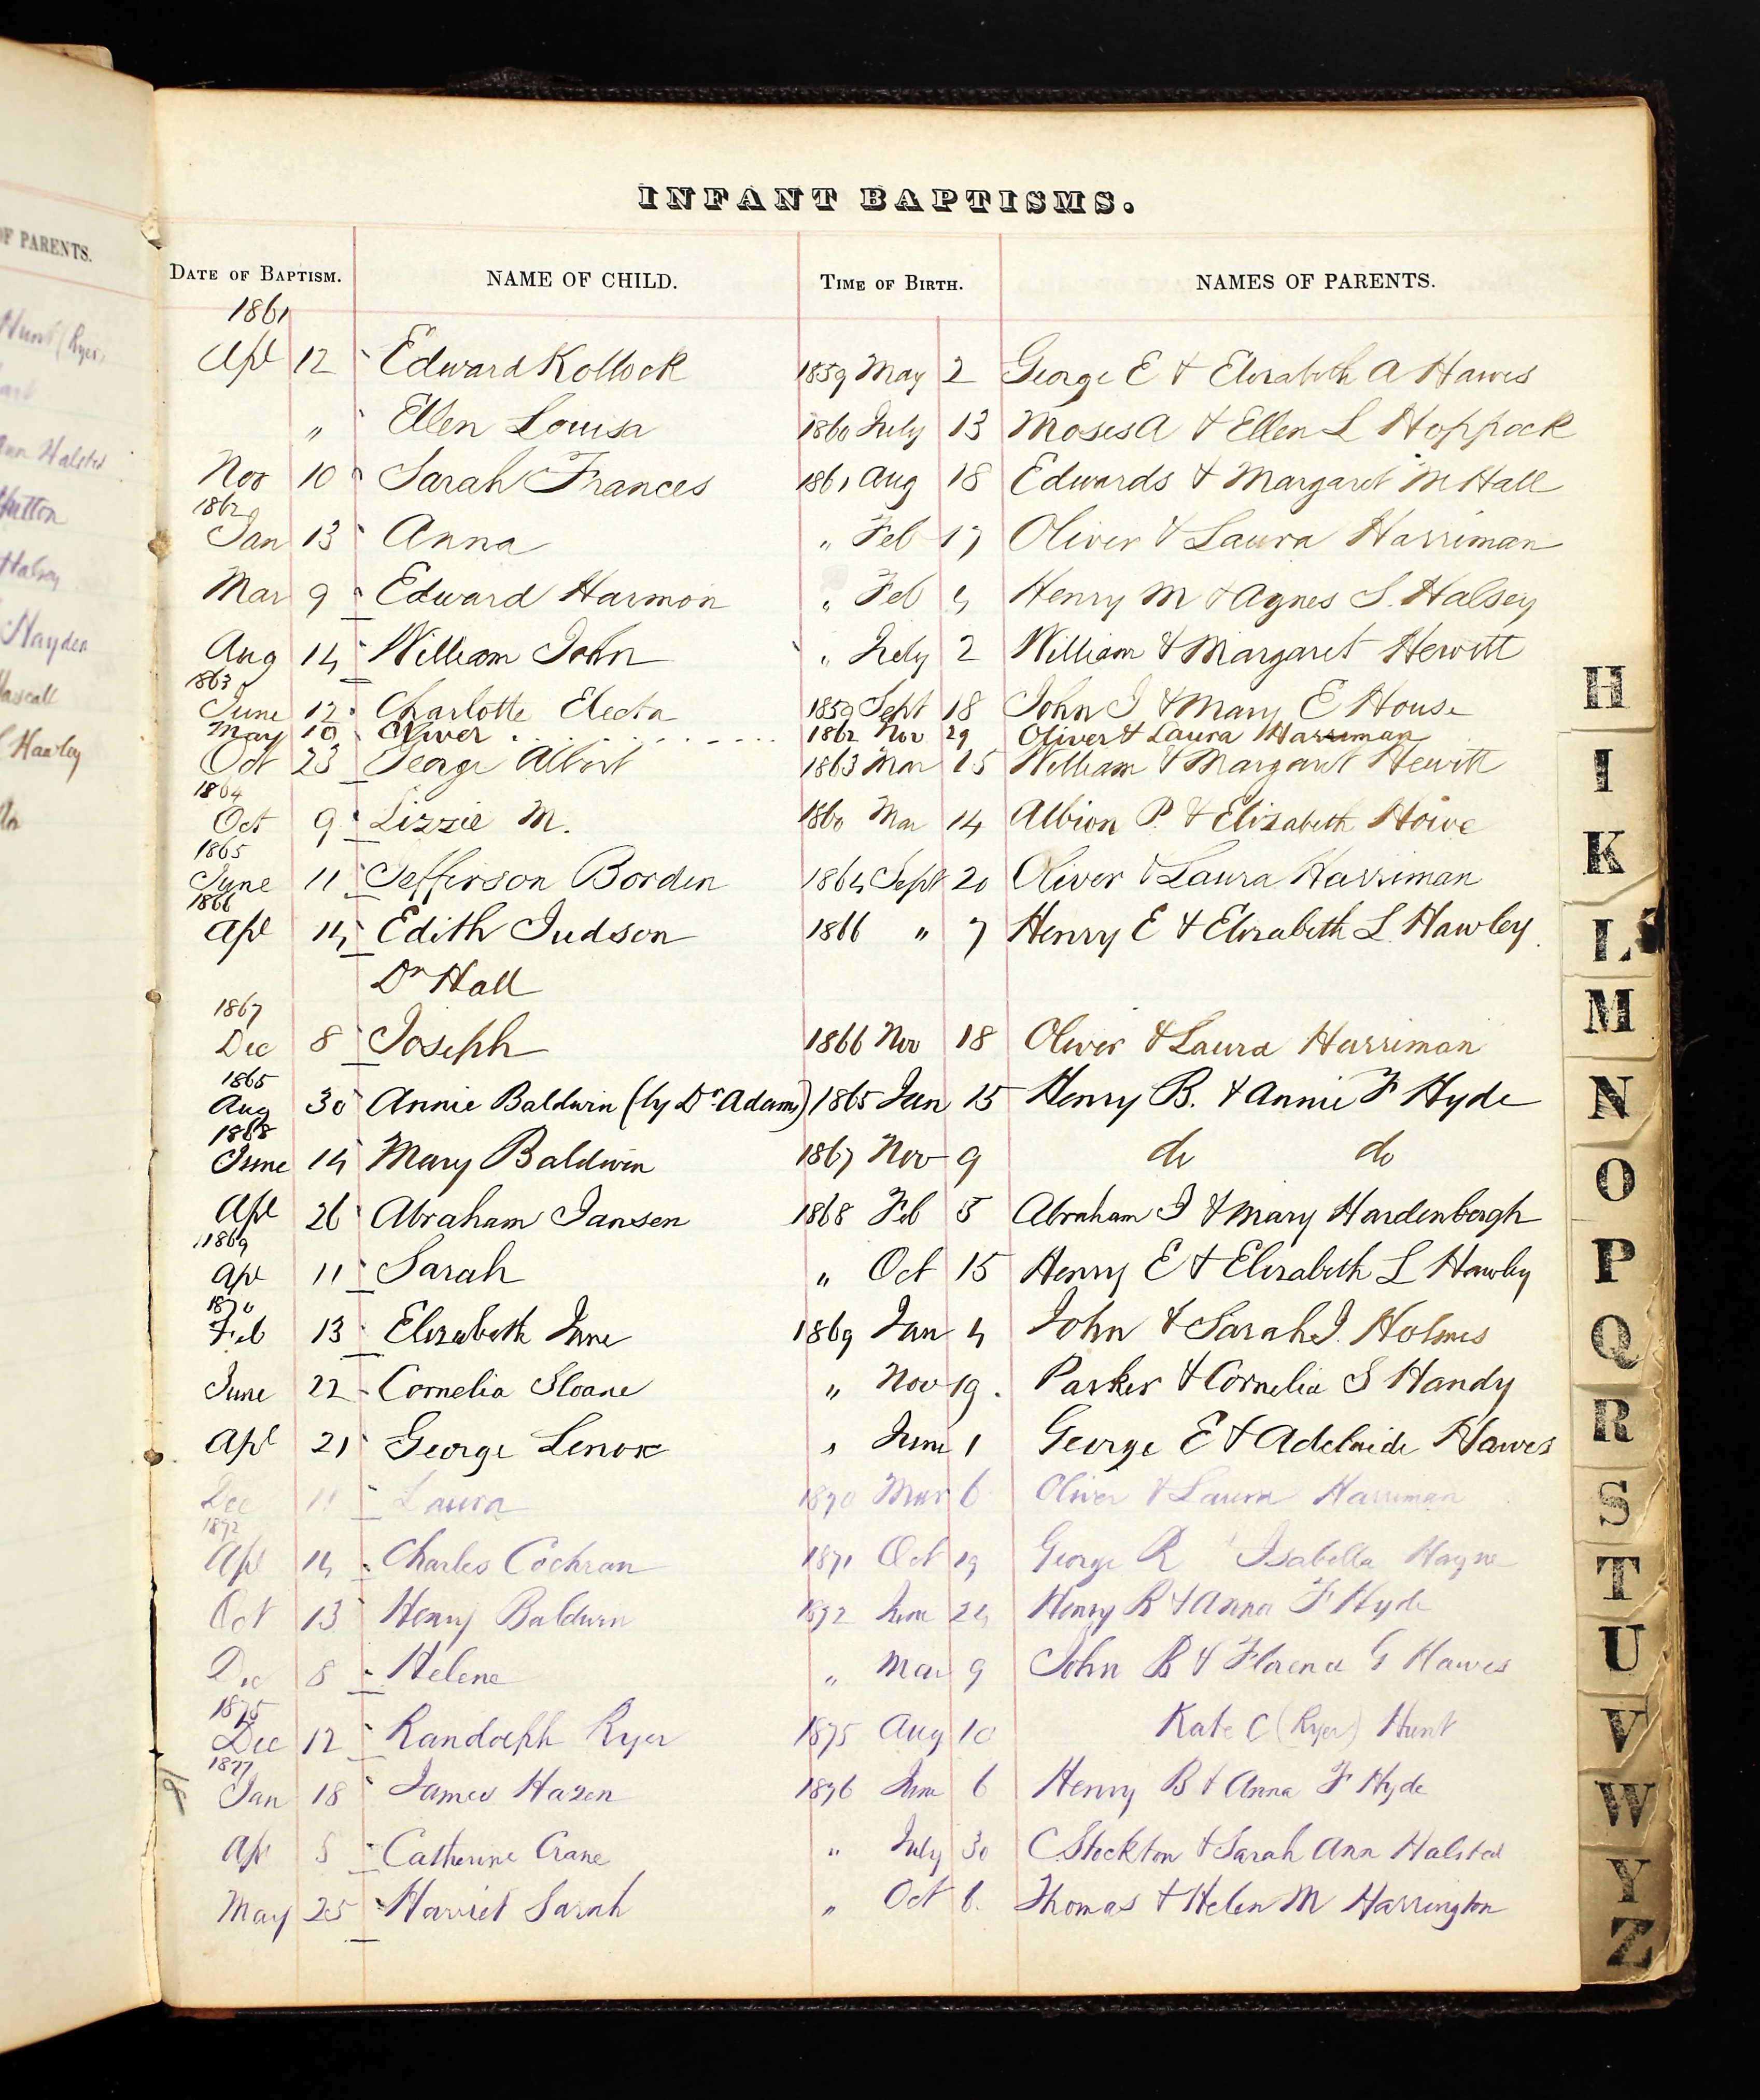 OF PARENTS.
Hunt (Ryer)
Ann Halsted
Hutton
Halsey
Hayden
Hascall
Hawley
INFANT BAPTISMS.
DATE OF BAPTISM. NAME OF CHILD. TIME OF BIRTH. NAMES OF PARENTS.
1861
Apl 12 Edward Kollock 1859 May 2 George E & Elizabeth A Hawes
" Ellen Louisa 1860 July 13 Moses A & Ellen L Hoppock
Nov 10 Sarah Frances 1861 Aug 18 Edwards & Margaret M Hall
1862
Jan 13 Anna " Feb 17 Oliver & Laura Harriman
Mar 9 Edward Harmon " Feb 4 Henry M & Agnes S. Halsey
Aug 14 William John " July 2 William & Margaret Hewitt
1863
June 12 Charlotte Electa 1859 Sept 18 John J & Mary E House
May 10 Oliver 1862 Nov 29 Oliver & Laura Harriman
Oct 23 George Albert 1863 Mar 15 William & Margaret Hewitt
1864
Oct 9 Lizzie M. 1860 Mar 14 Albion P. & Elizabeth Howe
1865
June 11 Jefferson Borden 1864 Sept 20 Oliver & Laura Harriman
1866
Apl 14 Edith Judson 1866 " 7 Henry E & Elizabeth L Hawley
Dr Hall
1867
Dec 8 Joseph 1866 Nov 18 Oliver & Laura Harriman
1865
Aug 30 Annie Baldwin (by Dr Adams) 1865 Jan 15 Henry B. & Annie F Hyde
1868
June 14 Mary Baldwin 1867 Nov 9 do do
Apl 26 Abraham Jansen 1868 Feb 5 Abraham J & Mary Hardenbergh
1869
Apl 11 Sarah " Oct 15 Henry E & Elizabeth L Hawley
1870
Feb 13 Elizabeth Jane 1869 Jan 4 John & Sarah J. Holmes
June 22 Cornelia Sloane " Nov 19. Parker & Cornelia S Handy
Apl 21 George Lenox " June 1 George E & Adelaide Hawes
Dec 11 Laura 1870 Mar 6 Oliver & Laura Harriman
1872
Apl 14 Charles Cochran 1871 Oct 19 George R Isabella Hayne
Oct 13 Henry Baldwin 1872 June 24 Henry B & Anna F Hyde
Dec 8 Helene " Mar 9 John B & Florence G Hawes
1875
Dec 12 Randolph Ryer 1875 Aug 10 Kate C (Ryer) Hunt
1877
Jan 18 James Hazen 1876 June 6 Henry B & Anna F Hyde
Apl 5 Catherine Crane " July 30 C Stockton & Sarah Ann Halsted
May 25 Harriet Sarah " Oct 6. Thomas & Helen M Harrington
H
I
K
L
M
N
O
P
Q
R
S
T
U
V
W
Y
Z